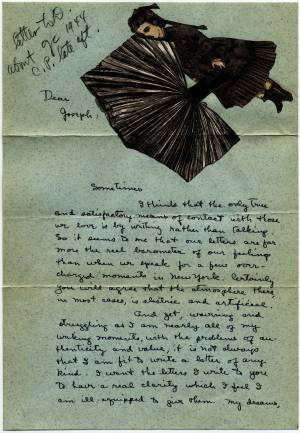 letter to
about 1944
C.P. late aft.
Dear
Joseph,
Sometimes
I think that the only true
and satisfactory means of contact with those
we love is by writing rather than talking.
So it seems to me that our letters are far
more the real barometer of our feelings
than when we speak for a few over-
charged moments in New York. Certainly
you will agree that the atmosphere there,
in most cases, is electric and artificial.
And yet, warring and
struggling as I am nearly all of my
waking moments, with the problems of au-
thenticity and value, it is not always
that I am fit to write a letter of any
kind. I want the letters I write to you
to have a real clarity which I feel I
am ill equipped to give them. My dreams,